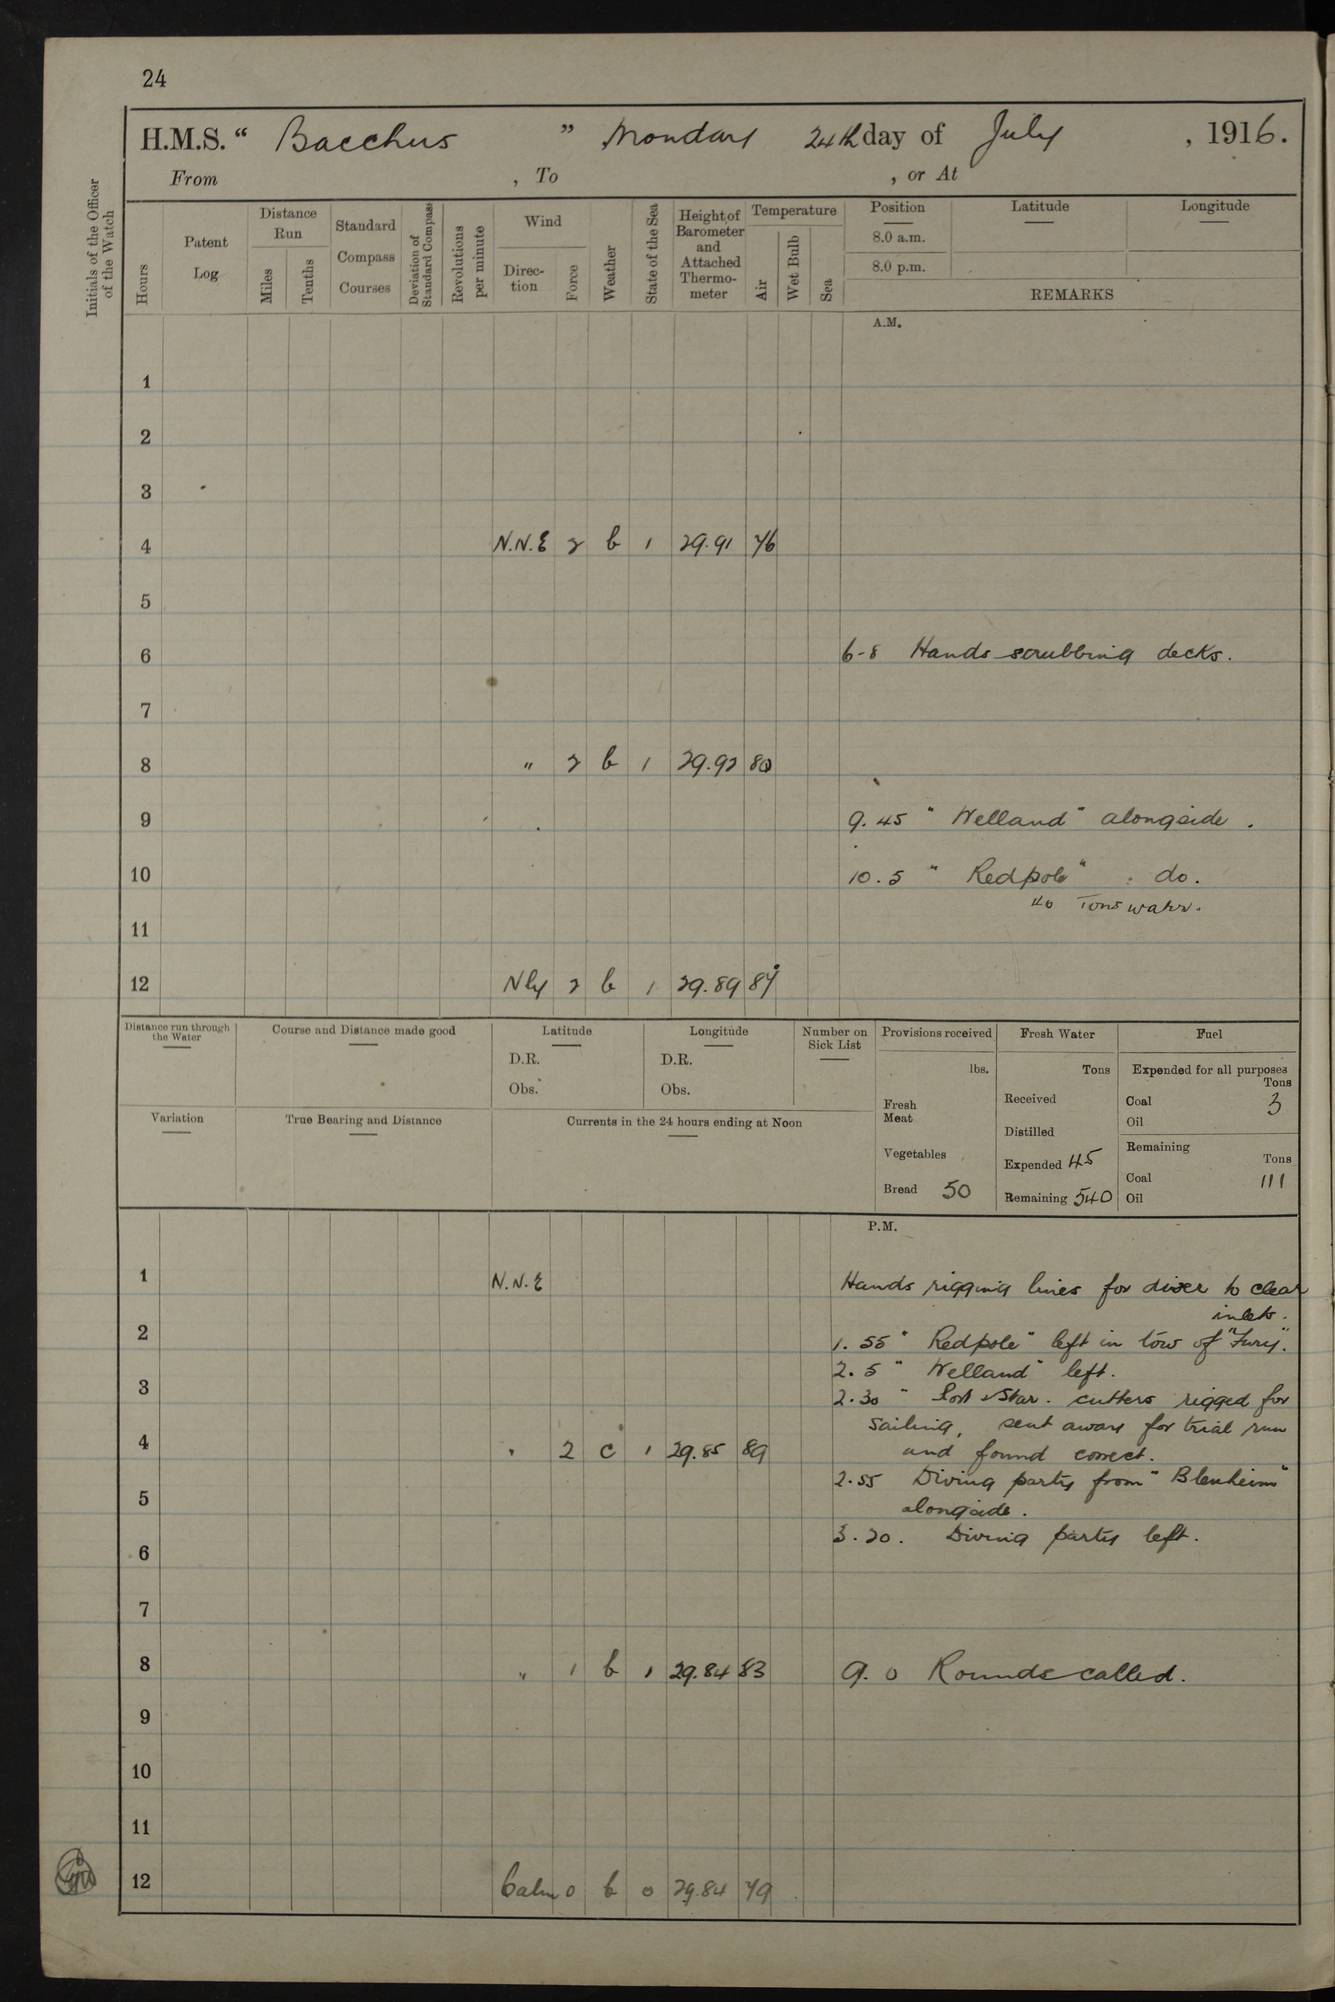 24
H.M.S. “ Bacchus ” Monday 24th day of July , 1916.
From , To , or At
Initials of the Officer of the Watch
Hours
Patent Log
Distance Run
Miles
Tenths
Standard Compass Courses
Deviation of Standard Compass
Revolutions per minute
Wind
Direc-tion
Force
Weather
State of the Sea
Height of Barometer and Attached Thermo-meter
Temperature
Air
Wet Bulb
Sea
Position Latitude Longitude
8.0 a.m.
8.0 p.m.
REMARKS
A.M.
1
2
3
4 N.N.E 2 b 1 29.91 76
5
6 6-8 Hands scrubbing decks.
7
8 " 2 b 1 29.92 80
9 9.45 " Welland " alongside .
10 10.5 " Redpole " do.
40 Tons water.
11
12 Nly 2 b 1 29.89 87
Distance run through the Water
Course and Distance made good
Latitude
D.R.
Obs.
Longitude
D.R.
Obs.
Number on Sick List
Provisions received
lbs.
Fresh Meat
Vegetables
Bread 50
Fresh Water
Tons
Received
Distilled
Expended 45
Remaining 540
Fuel
Expended for all purposes
Tons
Coal 3
Oil
Remaining
Tons
Coal 111
Oil
Variation
True Bearing and Distance
Currents in the 24 hours ending at Noon
P.M.
1 N.N.E Hands rigging lines for diver to clear
inlets.
2 1.55 " Redpole " left in tow of "Fury".
2.5 " Welland " left.
3 2.30 " Port & Star. cutters rigged for
sailing, sent away for trial run
4 " 2 c 1 29.85 89 and found correct.
2.55 Diving party from " Blenheim "
5 alongside.
3.20. Diving party left.
6
7
8 " 1 b 1 29.84 83 9.0 Rounds called.
9
10
11
12 Calm 0 b 0 29.84 79